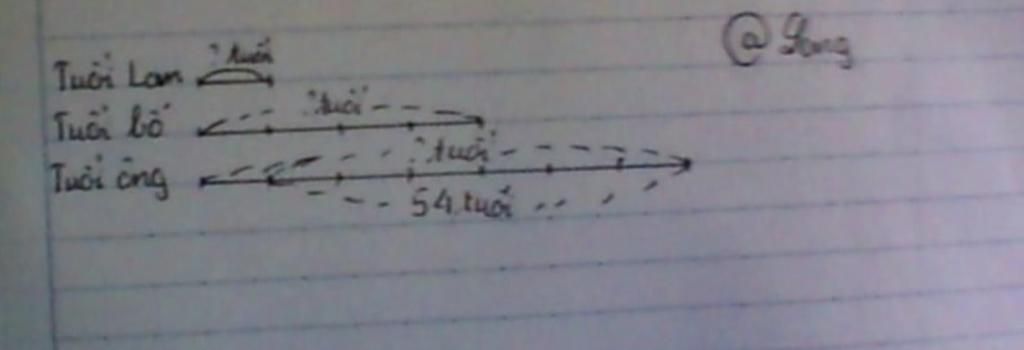 @ Long
? tuổi
Tuổi Lan
? tuổi
Tuổi bố
? tuổi
Tuổi ông
54 tuổi